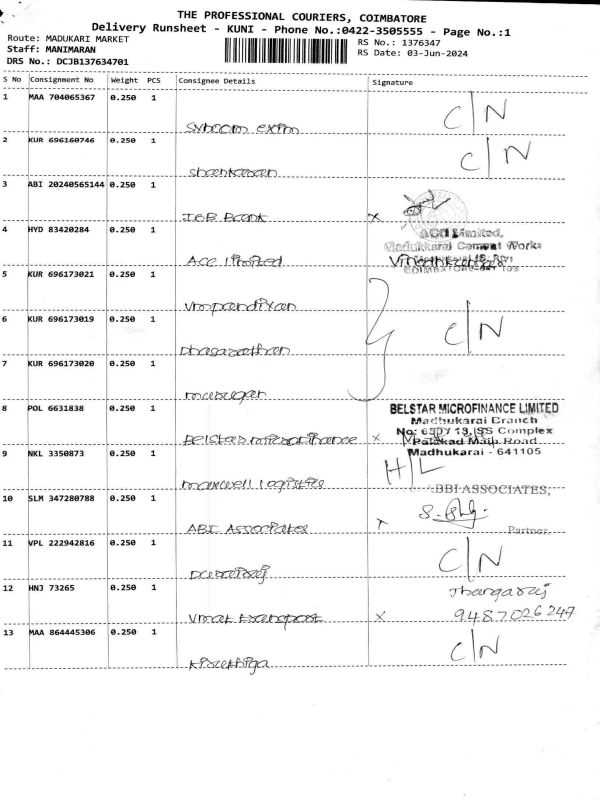 THE PROFESSIONAL COURIERS, COIMBATORE
Delivery Runsheet - KUNI - Phone No.:0422-3505555 - Page No.:1
Route: MADUKARI MARKET
RS No.: 1376347
Staff: MANIMARAN
RS Date: 03-Jun-2024
DRS No.: DCJB137634701
S No Consignment No Weight PCS Consignee Details Signature
1 MAA 704065367 0.250 1
C/N
2 KUR 696160746 0.250 1
C/N
Shankaran
3 ABI 20240565144 0.250 1
IOB Bank x
4 HYD 83420284 0.250 1
ACC Limited,
Madukkarai Cement Works
Acc limited
5 KUR 696173021 0.250 1
Vmpandiyan
6 KUR 696173019 0.250 1
C/N
7 KUR 696173020 0.250 1
murugan
8 POL 6631838 0.250 1
BELSTAR MICROFINANCE LIMITED
Madhukarai Branch
ISS Complex
Belstar microfinance x
Palakad Main Road
9 NKL 3350873 0.250 1
Madhukarai - 641105
H/L
maxwell logistics
10 SLM 347280788 0.250 1
ABBI ASSOCIATES,
ABI Associates x
Partner
11 VPL 222942816 0.250 1
C/N
12 HNJ 73265 0.250 1
Thangaraj
Vmat transport x 9487026247
13 MAA 864445306 0.250 1
C/N
Kiruthiga